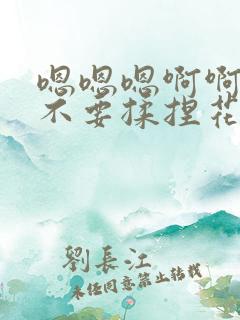 嗯嗯嗯啊啊
不要揉捏花
劉長江
未经同意禁止转载